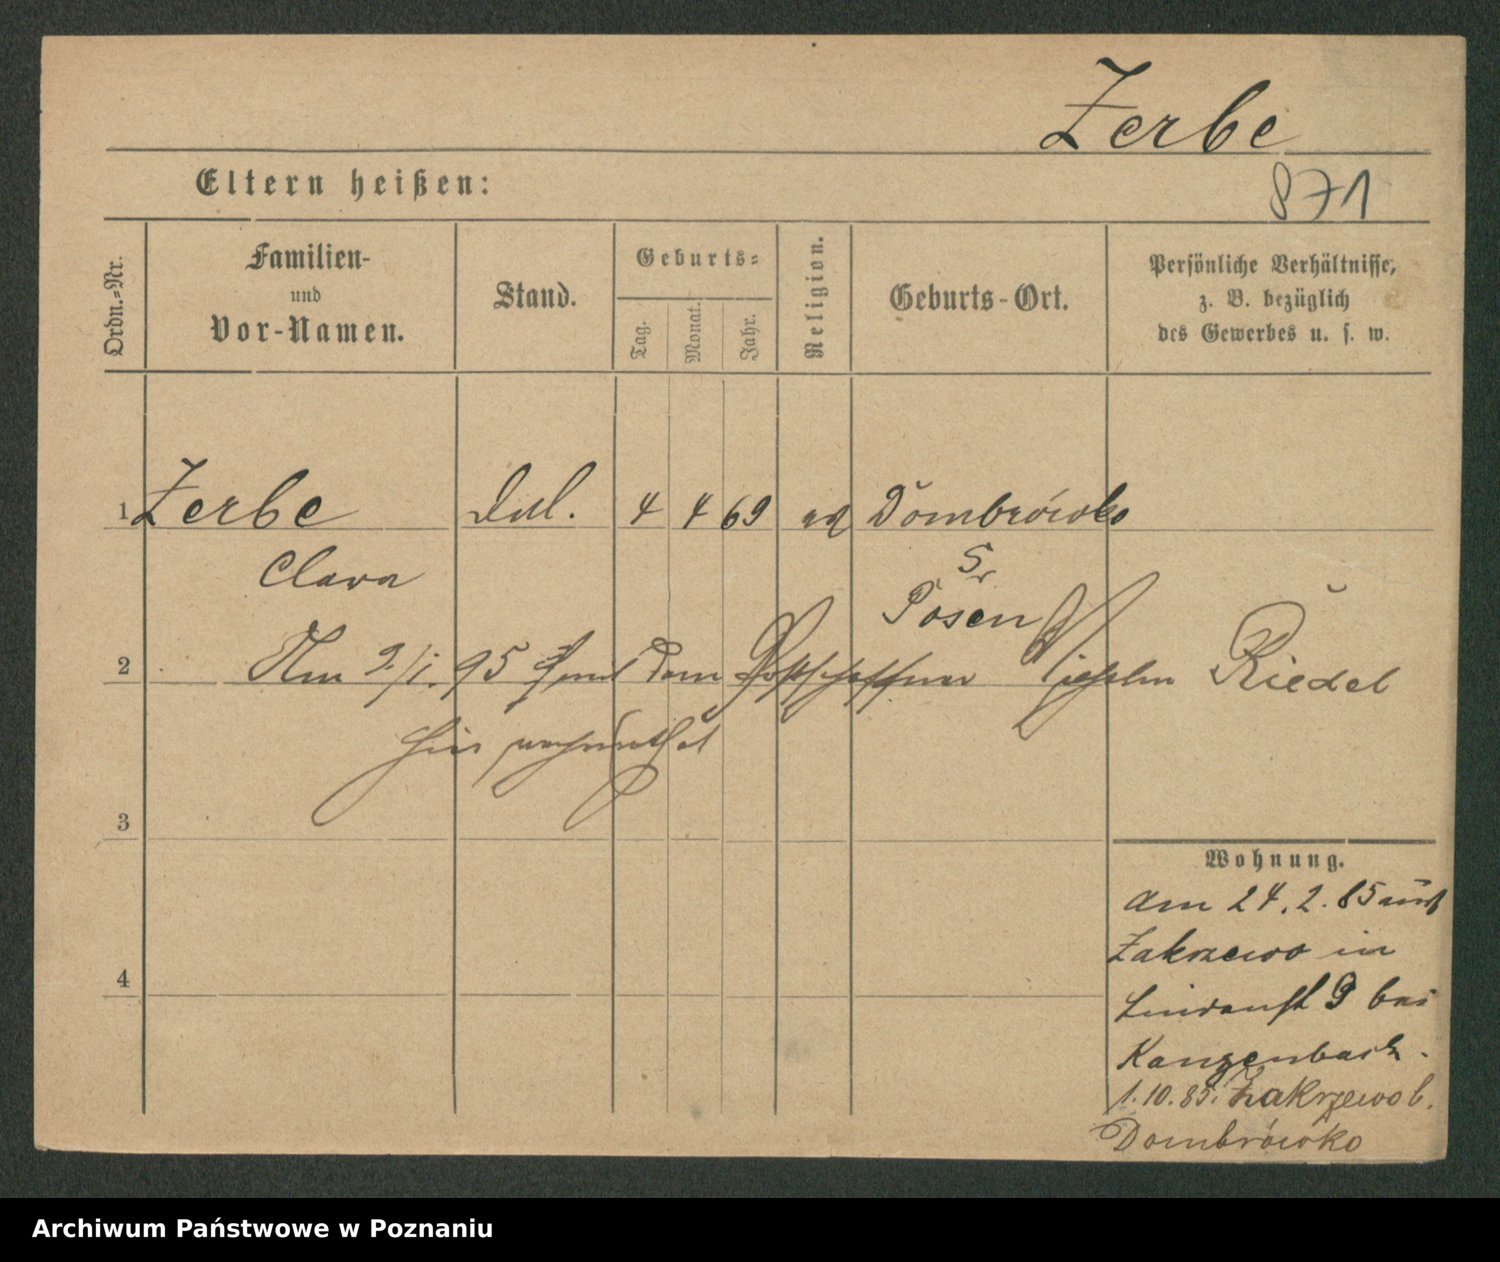 Zerbe
Eltern heißen:
871
Ordn.-Nr.
Familien-
und
Vor-Namen.
Stand.
Geburts-
Tag.
Monat.
Jahr.
Religion.
Geburts-Ort.
Persönliche Verhältnisse,
z. B. bezüglich
des Gewerbes u. s. w.
1 Zerbe 4 4 69 Dombrówko
Clara Posen
2 Am 2/1. 95 mit dem Postschaffner Wilhelm Riedel
hier verheirathet
3
4
Wohnung.
am 24. 2. 85 aus
Zakrzewo in
9 bei
Kanzenbach.
1.10.85. Zakrzewo b.
Dombrówko
Archiwum Państwowe w Poznaniu